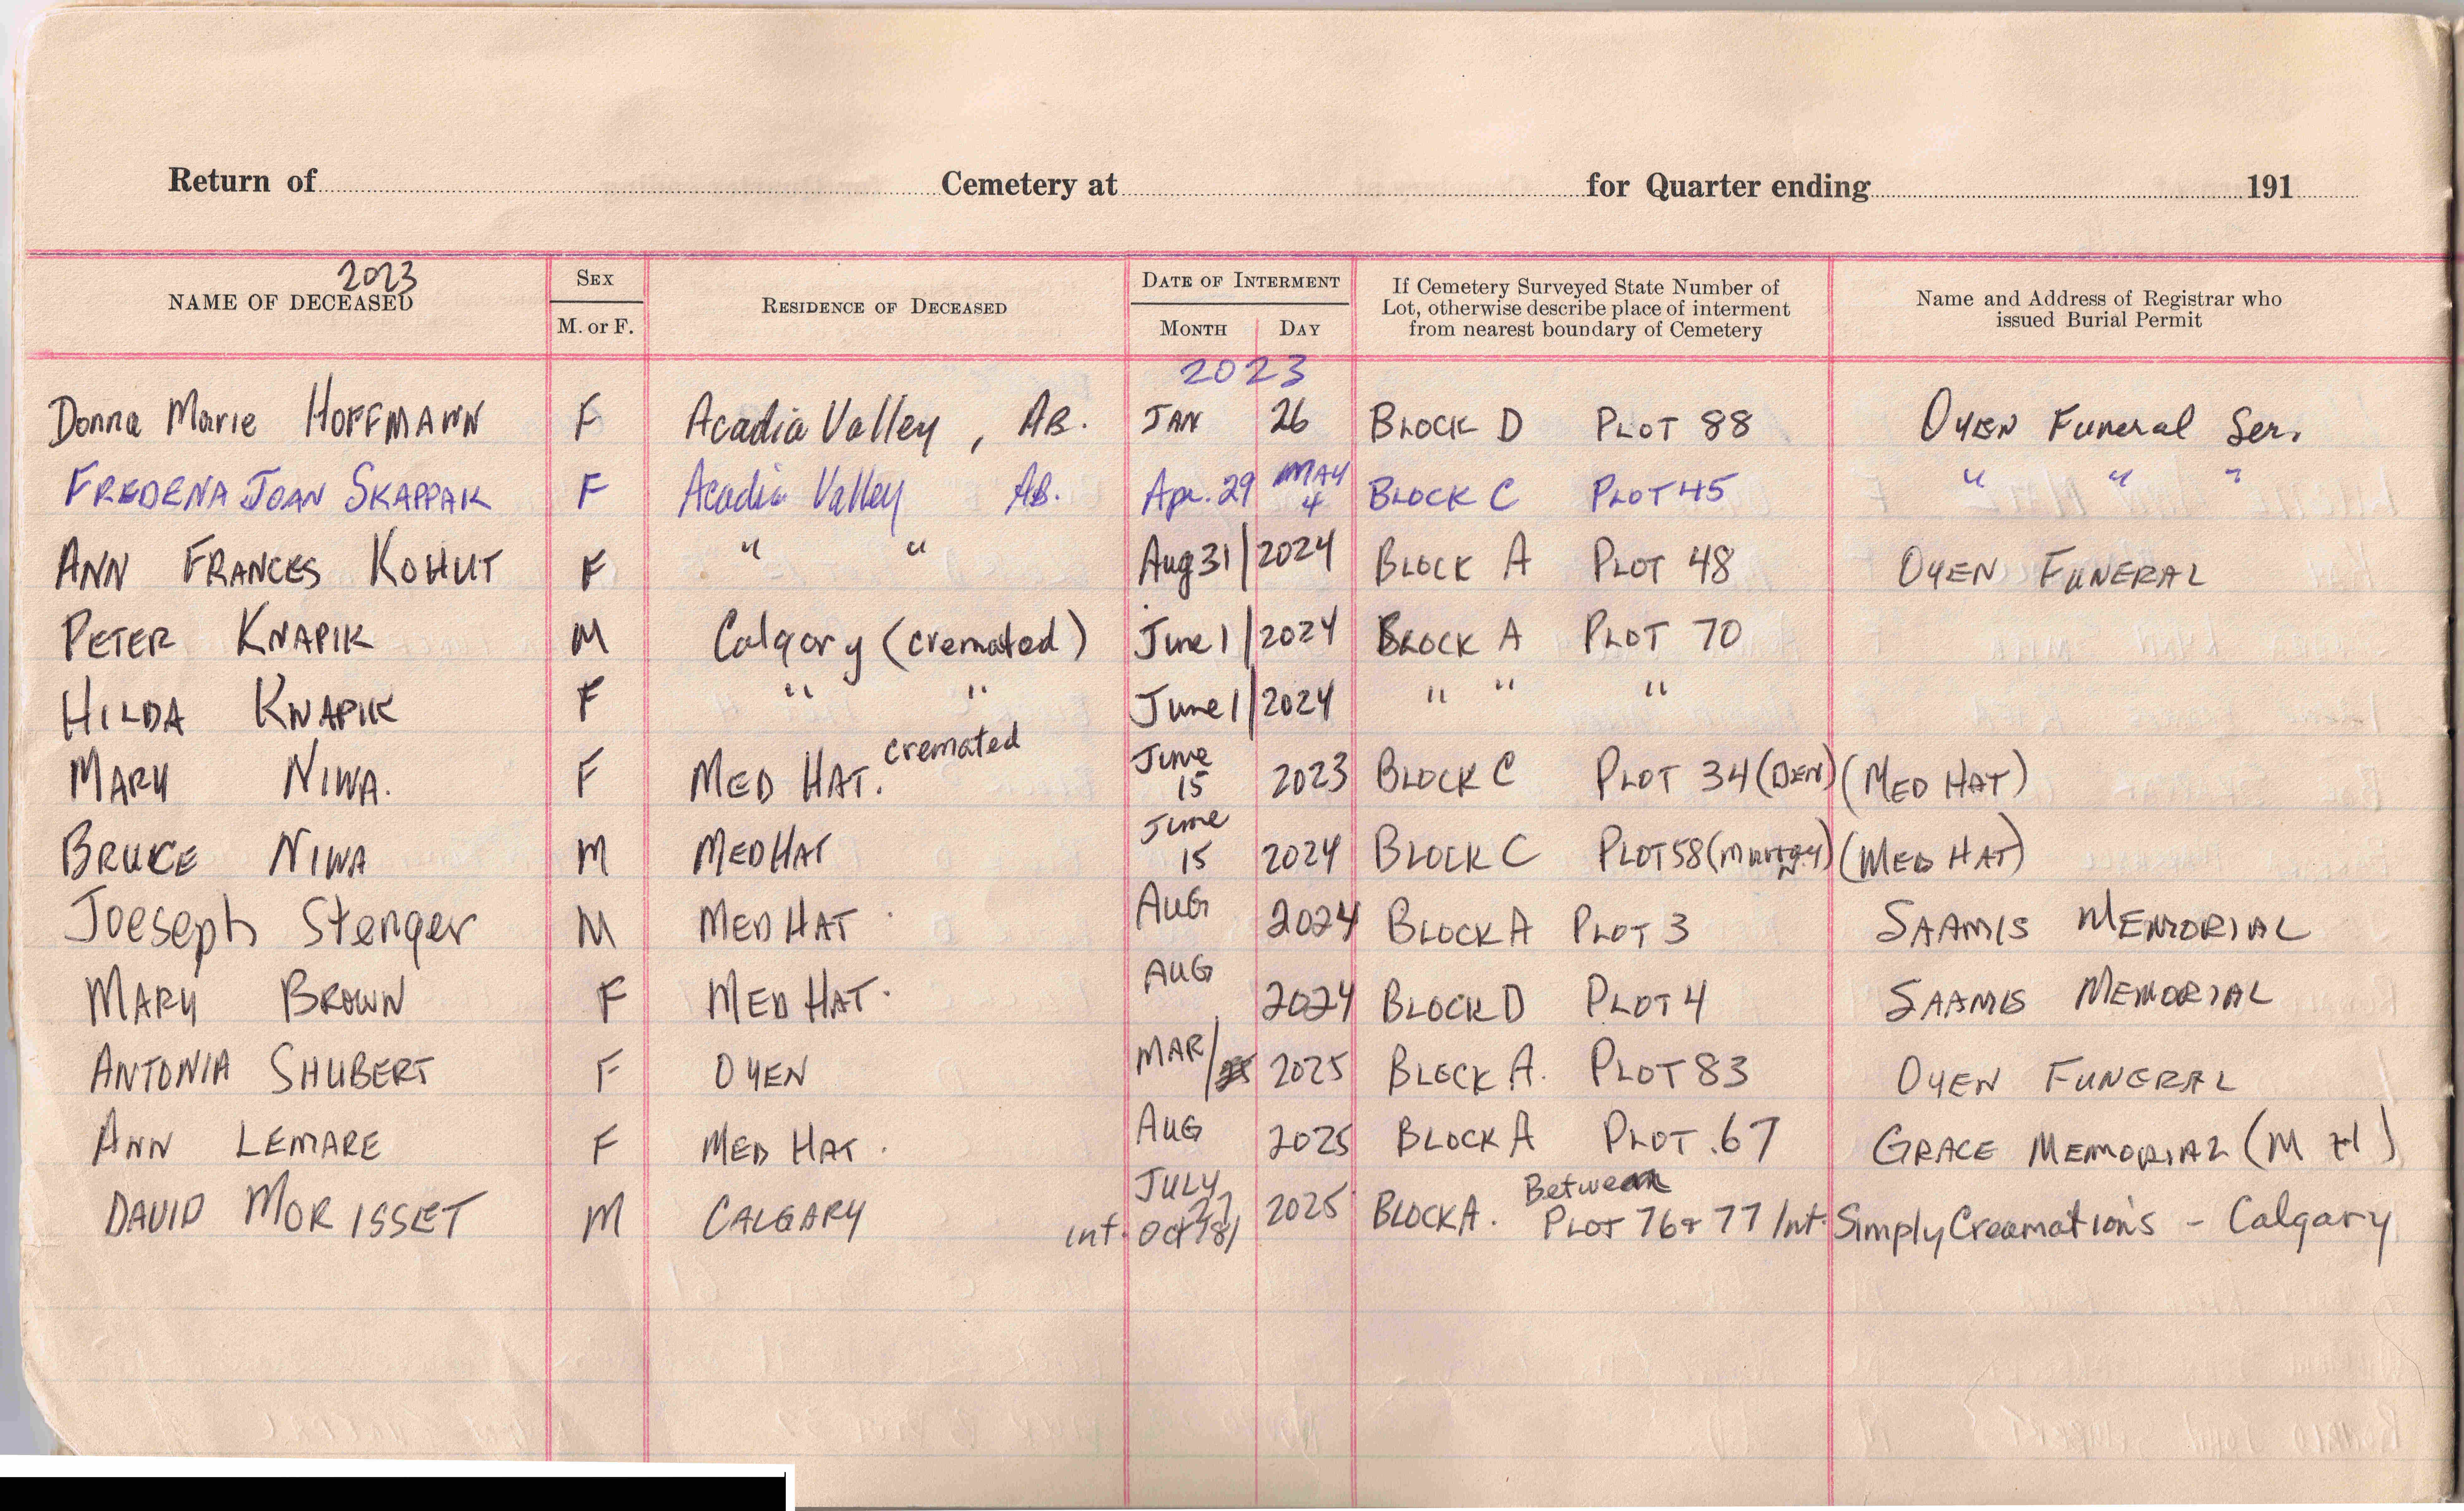 Return of Cemetery at for Quarter ending 191
2023
NAME OF DECEASED SEX M. or F. RESIDENCE OF DECEASED DATE OF INTERMENT MONTH DAY If Cemetery Surveyed State Number of Lot, otherwise describe place of interment from nearest boundary of Cemetery Name and Address of Registrar who issued Burial Permit
2023
Donna Marie HOFFMANN F Acadia Valley, AB. JAN 26 BLOCK D PLOT 88 OYEN Funeral Ser.
FREDENA JOAN SKAPPAK F Acadia Valley AB. Apr. 29 MAY 4 BLOCK C PLOT 45 " " "
ANN FRANCES KOHUT F " " Aug 31/2024 BLOCK A PLOT 48 OYEN FUNERAL
PETER KNAPIK M Calgary (cremated) June 1/2024 BLOCK A PLOT 70
HILDA KNAPIK F " " June 1/2024 " " "
MARY NIWA. F MED HAT. cremated June 15 2023 BLOCK C PLOT 34 (DEN) (MED HAT)
BRUCE NIWA M MED HAT June 15 2024 BLOCK C PLOT 58 (MED HAT)
Joeseph Stenger M MED HAT AUG 2024 BLOCK A PLOT 3 SAAMIS MEMORIAL
MARY BROWN F MED HAT. AUG 2024 BLOCK D PLOT 4 SAAMIS MEMORIAL
ANTONIA SHUBERT F OYEN MAR/ 2025 BLOCK A. PLOT 83 OYEN FUNERAL
ANN LEMARE F MED HAT. AUG 2025 BLOCK A PLOT .67 GRACE MEMORIAL (M H)
DAVID MORISSET M CALGARY JULY 27 int. Oct 18/ 2025 BLOCK A. Between PLOT 76 & 77 Int. Simply Creamations - Calgary